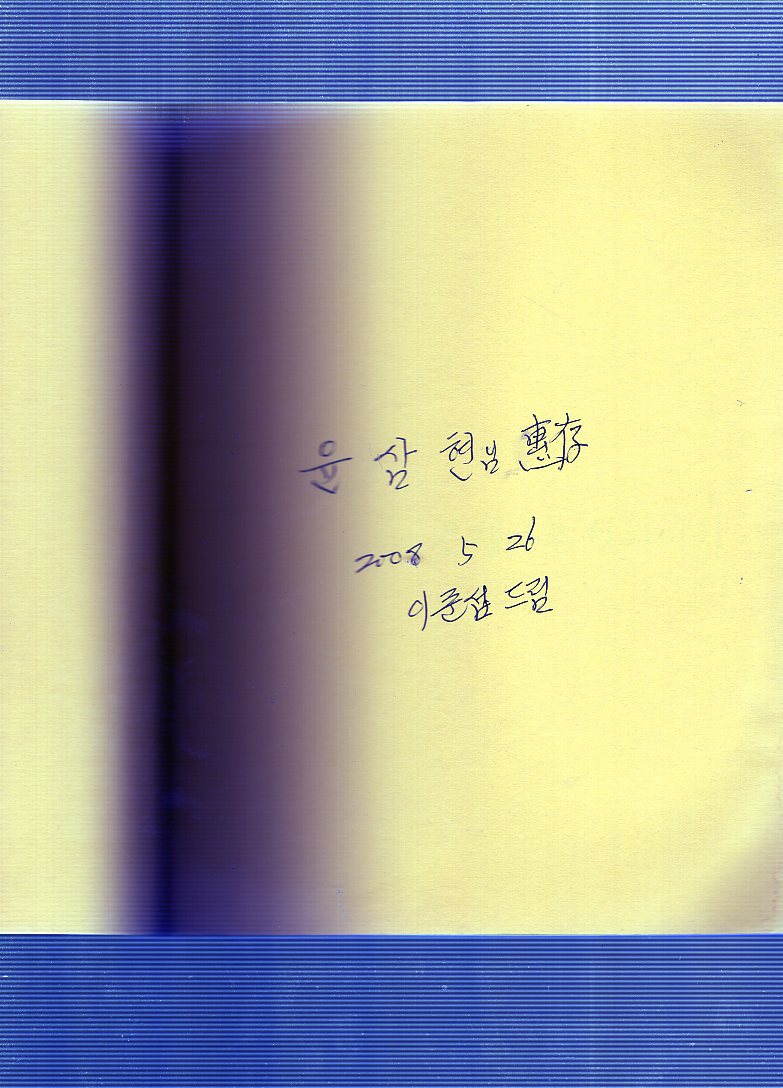 윤삼현님 惠存
2008 5 26
이준섭 드림